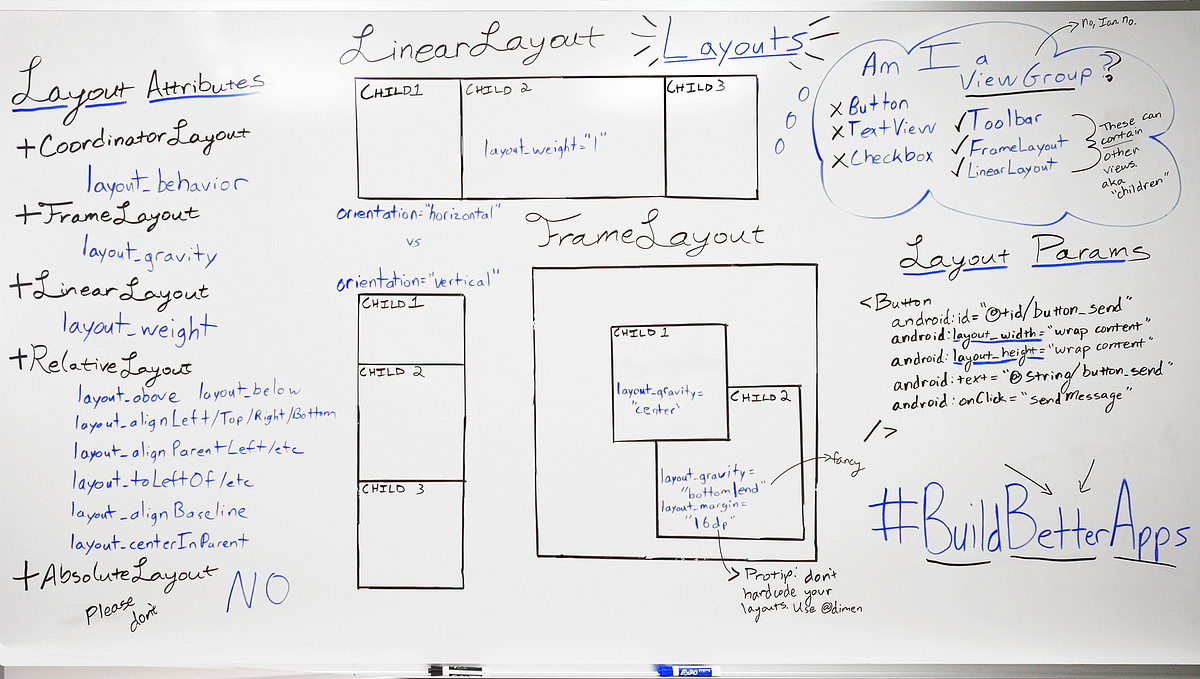 Layouts
Layout Attributes
+CoordinatorLayout
layout_behavior
+FrameLayout
layout_gravity
+LinearLayout
layout_weight
+RelativeLayout
layout_above layout_below
layout_alignLeft/Top/Right/Bottom
layout_alignParentLeft/etc
layout_toLeftOf/etc
layout_alignBaseline
layout_centerInParent
+AbsoluteLayout
Please
don't
NO
LinearLayout
CHILD1
CHILD 2
CHILD3
layout_weight="1"
orientation="horizontal"
vs
orientation="vertical"
CHILD 1
CHILD 2
CHILD 3
FrameLayout
CHILD 1
layout_gravity=
"center"
CHILD 2
layout_gravity=
"bottom|end"
layout_margin=
"16dp"
fancy
Protip: don't
hardcode your
layouts. Use @dimen
Am I a
ViewGroup?
no, I am no.
X Button
X TextView
X Checkbox
✓Toolbar
✓FrameLayout
✓LinearLayout
These can
contain
other
views.
aka
"children"
Layout Params
<Button
android:id="@+id/button_send"
android:layout_width="wrap content"
android:layout_height="wrap content"
android:text="@string/button_send"
android:onClick="sendMessage"
/>
#BuildBetterApps
EXPO